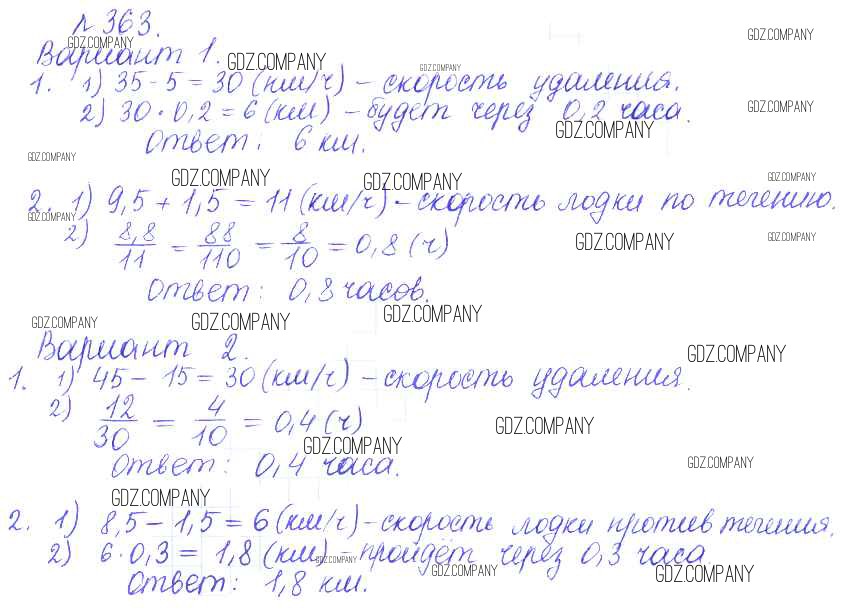 №363.
GDZ.COMPANY
GDZ.COMPANY
Вариант 1.
GDZ.COMPANY
GDZ.COMPANY
1. 1) 35 - 5 = 30 (км/ч) - скорость удаления.
2) 30 · 0,2 = 6 (км) - будет через 0,2 часа.
GDZ.COMPANY
GDZ.COMPANY
Ответ: 6 км.
GDZ.COMPANY
GDZ.COMPANY GDZ.COMPANY GDZ.COMPANY
2. 1) 9,5 + 1,5 = 11 (км/ч) - скорость лодки по течению.
GDZ.COMPANY
2) 8,8/11 = 88/110 = 8/10 = 0,8 (ч)
GDZ.COMPANY GDZ.COMPANY
Ответ: 0,8 часов.
GDZ.COMPANY GDZ.COMPANY GDZ.COMPANY
Вариант 2.
GDZ.COMPANY
1. 1) 45 - 15 = 30 (км/ч) - скорость удаления.
2) 12/30 = 4/10 = 0,4 (ч)
GDZ.COMPANY
GDZ.COMPANY
Ответ: 0,4 часа.
GDZ.COMPANY
GDZ.COMPANY
2. 1) 8,5 - 1,5 = 6 (км/ч) - скорость лодки против течения.
2) 6 · 0,3 = 1,8 (км) - пройдёт через 0,3 часа.
GDZ.COMPANY GDZ.COMPANY GDZ.COMPANY
Ответ: 1,8 км.